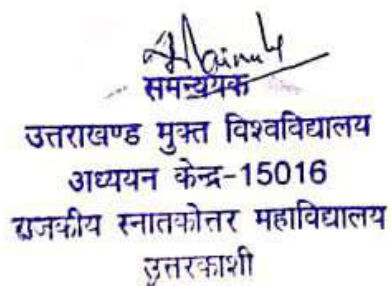 समन्वयक
उत्तराखण्ड मुक्त विश्वविद्यालय
अध्ययन केन्द्र-15016
राजकीय स्नातकोत्तर महाविद्यालय
उत्तरकाशी